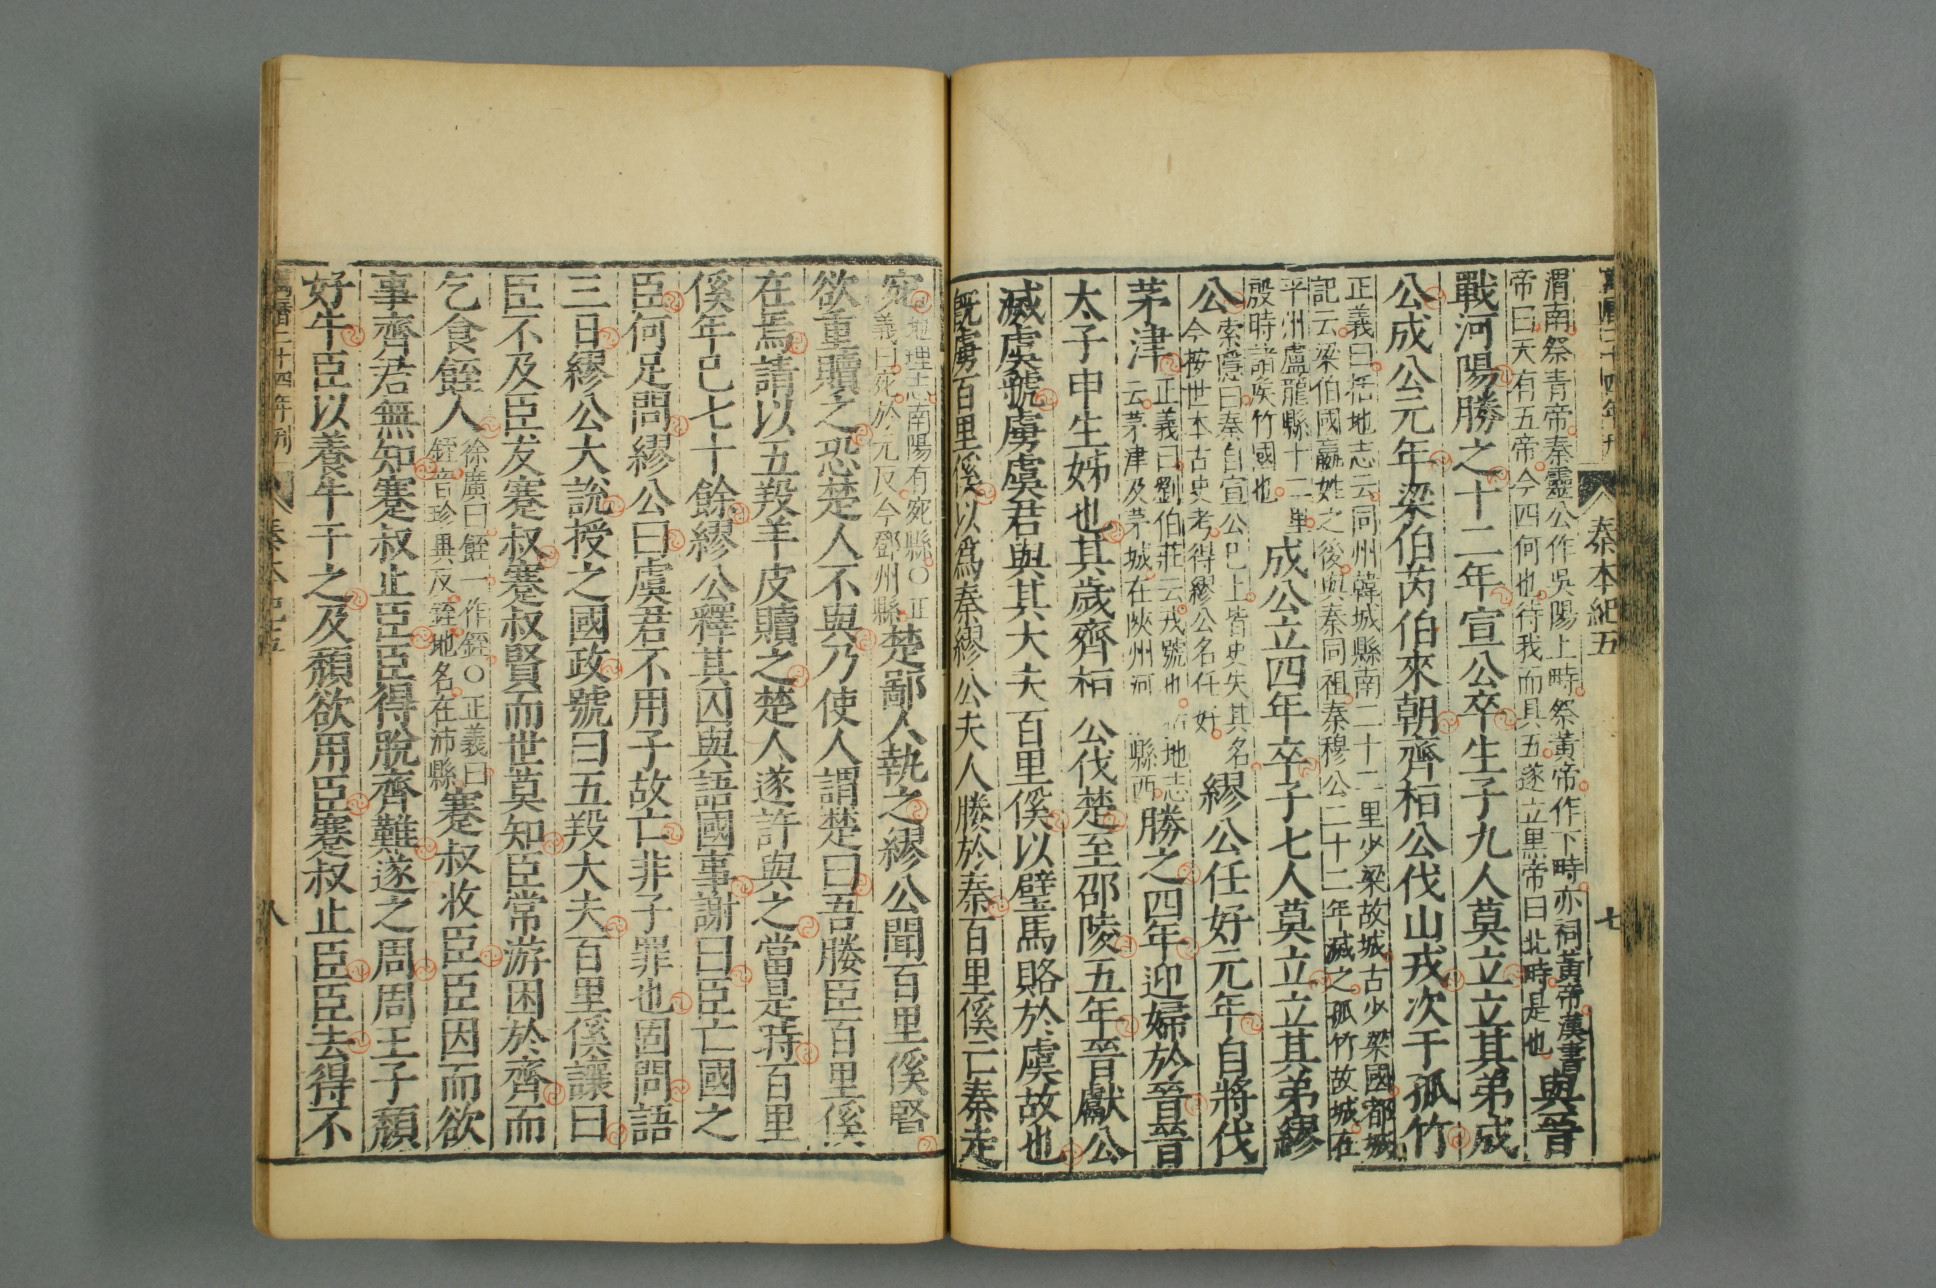 萬曆二十四年刊
秦本紀五
七
渭南祭青帝秦靈公作吳陽上畤祭黃帝作下畤亦祠黃帝漢書
帝曰天有五帝今四何也待我而具五遂立黑帝曰北畤是也與晉
戰河陽勝之十二年宣公卒生子九人莫立立其弟成
公成公元年梁伯芮伯來朝齊桓公伐山戎次于孤竹
正義曰括地志云同州韓城縣南二十二里少梁故城古少梁國都城
記云梁伯國嬴姓之後與秦同祖秦穆公二十二年滅之孤竹故城在
平州盧龍縣十二里
殷時諸侯竹國也
成公立四年卒子七人莫立立其弟繆
公
索隱曰秦自宣公已上皆史失其名
今按世本古史考得繆公名任好
繆公任好元年自將伐
茅津
正義曰劉伯莊云戎號也括地志
云茅津及茅城在陝州河 縣西
勝之四年迎婦於晉晉
太子申生姊也其歲齊桓公伐楚至邵陵五年晉獻公
滅虞虢虜虞君與其大夫百里傒以璧馬賂於虞故也
既虜百里傒以為秦繆公夫人媵於秦百里傒亡秦走
宛
地理志南陽有宛縣○正
義曰宛於元反今鄧州縣
楚鄙人執之繆公聞百里傒賢
欲重贖之恐楚人不與乃使人謂楚曰吾媵臣百里傒
在焉請以五羖羊皮贖之楚人遂許與之當是時百里
傒年已七十餘繆公釋其囚與語國事謝曰臣亡國之
臣何足問繆公曰虞君不用子故亡非子罪也固問語
三日繆公大說授之國政號曰五羖大夫百里傒讓曰
臣不及臣友蹇叔蹇叔賢而世莫知臣常游困於齊而
乞食䬹人
徐廣曰䬹一作銍○正義曰
銍音珍栗反銍地名在沛縣
蹇叔收臣臣因而欲
事齊君無知蹇叔止臣臣得脫齊難遂之周周王子頹
好牛臣以養牛干之及頹欲用臣蹇叔止臣臣去得不
萬曆二十四年刊
秦本紀五
八